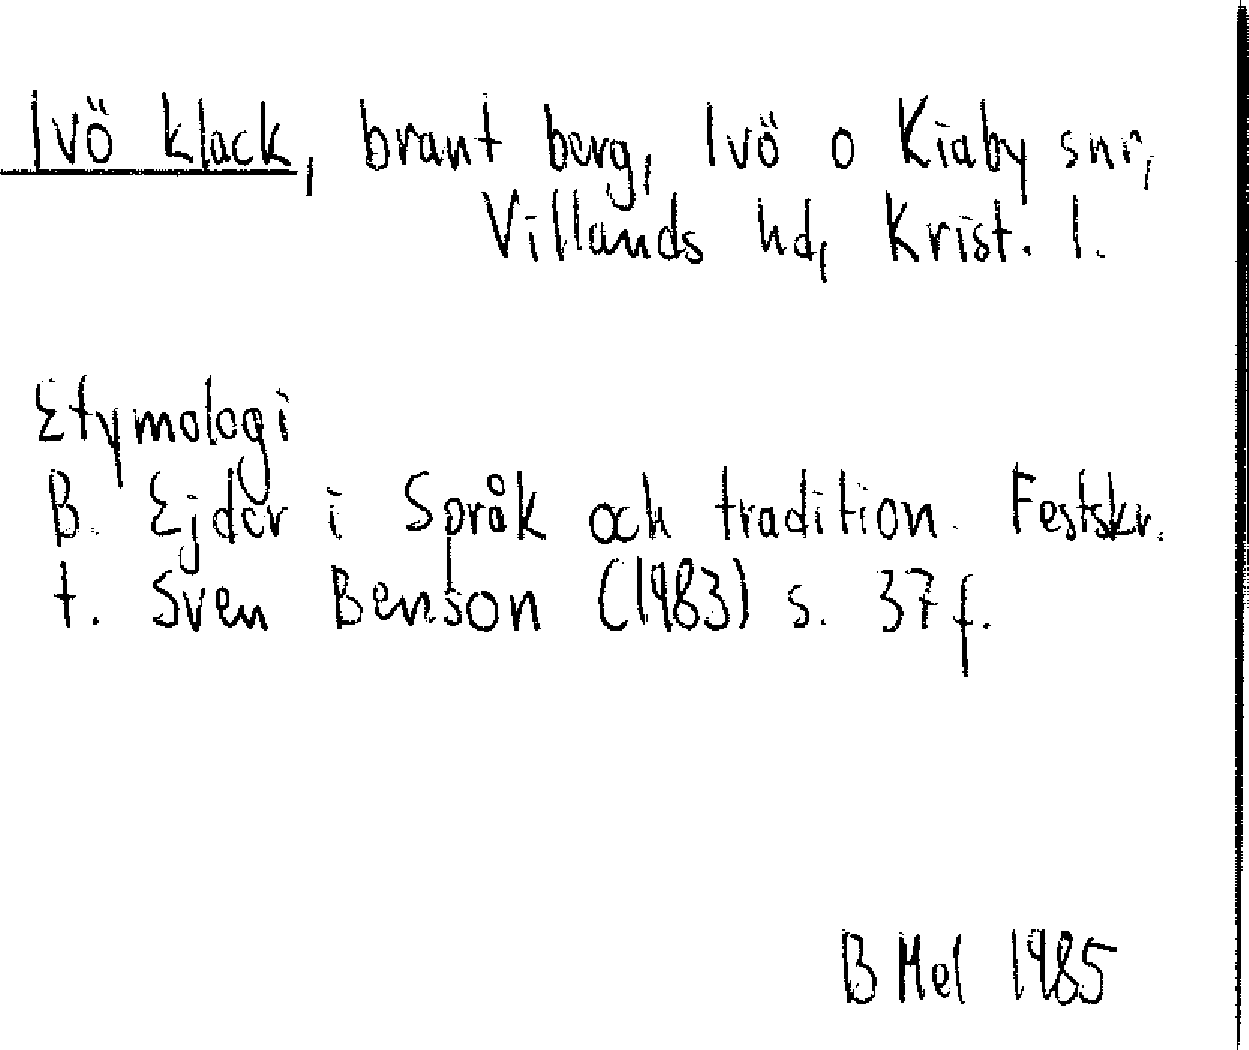 Ivö klack, brant berg, Ivö o Kiaby snr,
Villands hd, Krist. l.
Etymologi
B. Ejder i Språk och tradition. Festskr.
t. Sven Benson (1983) s. 37 f.
B Mel 1985